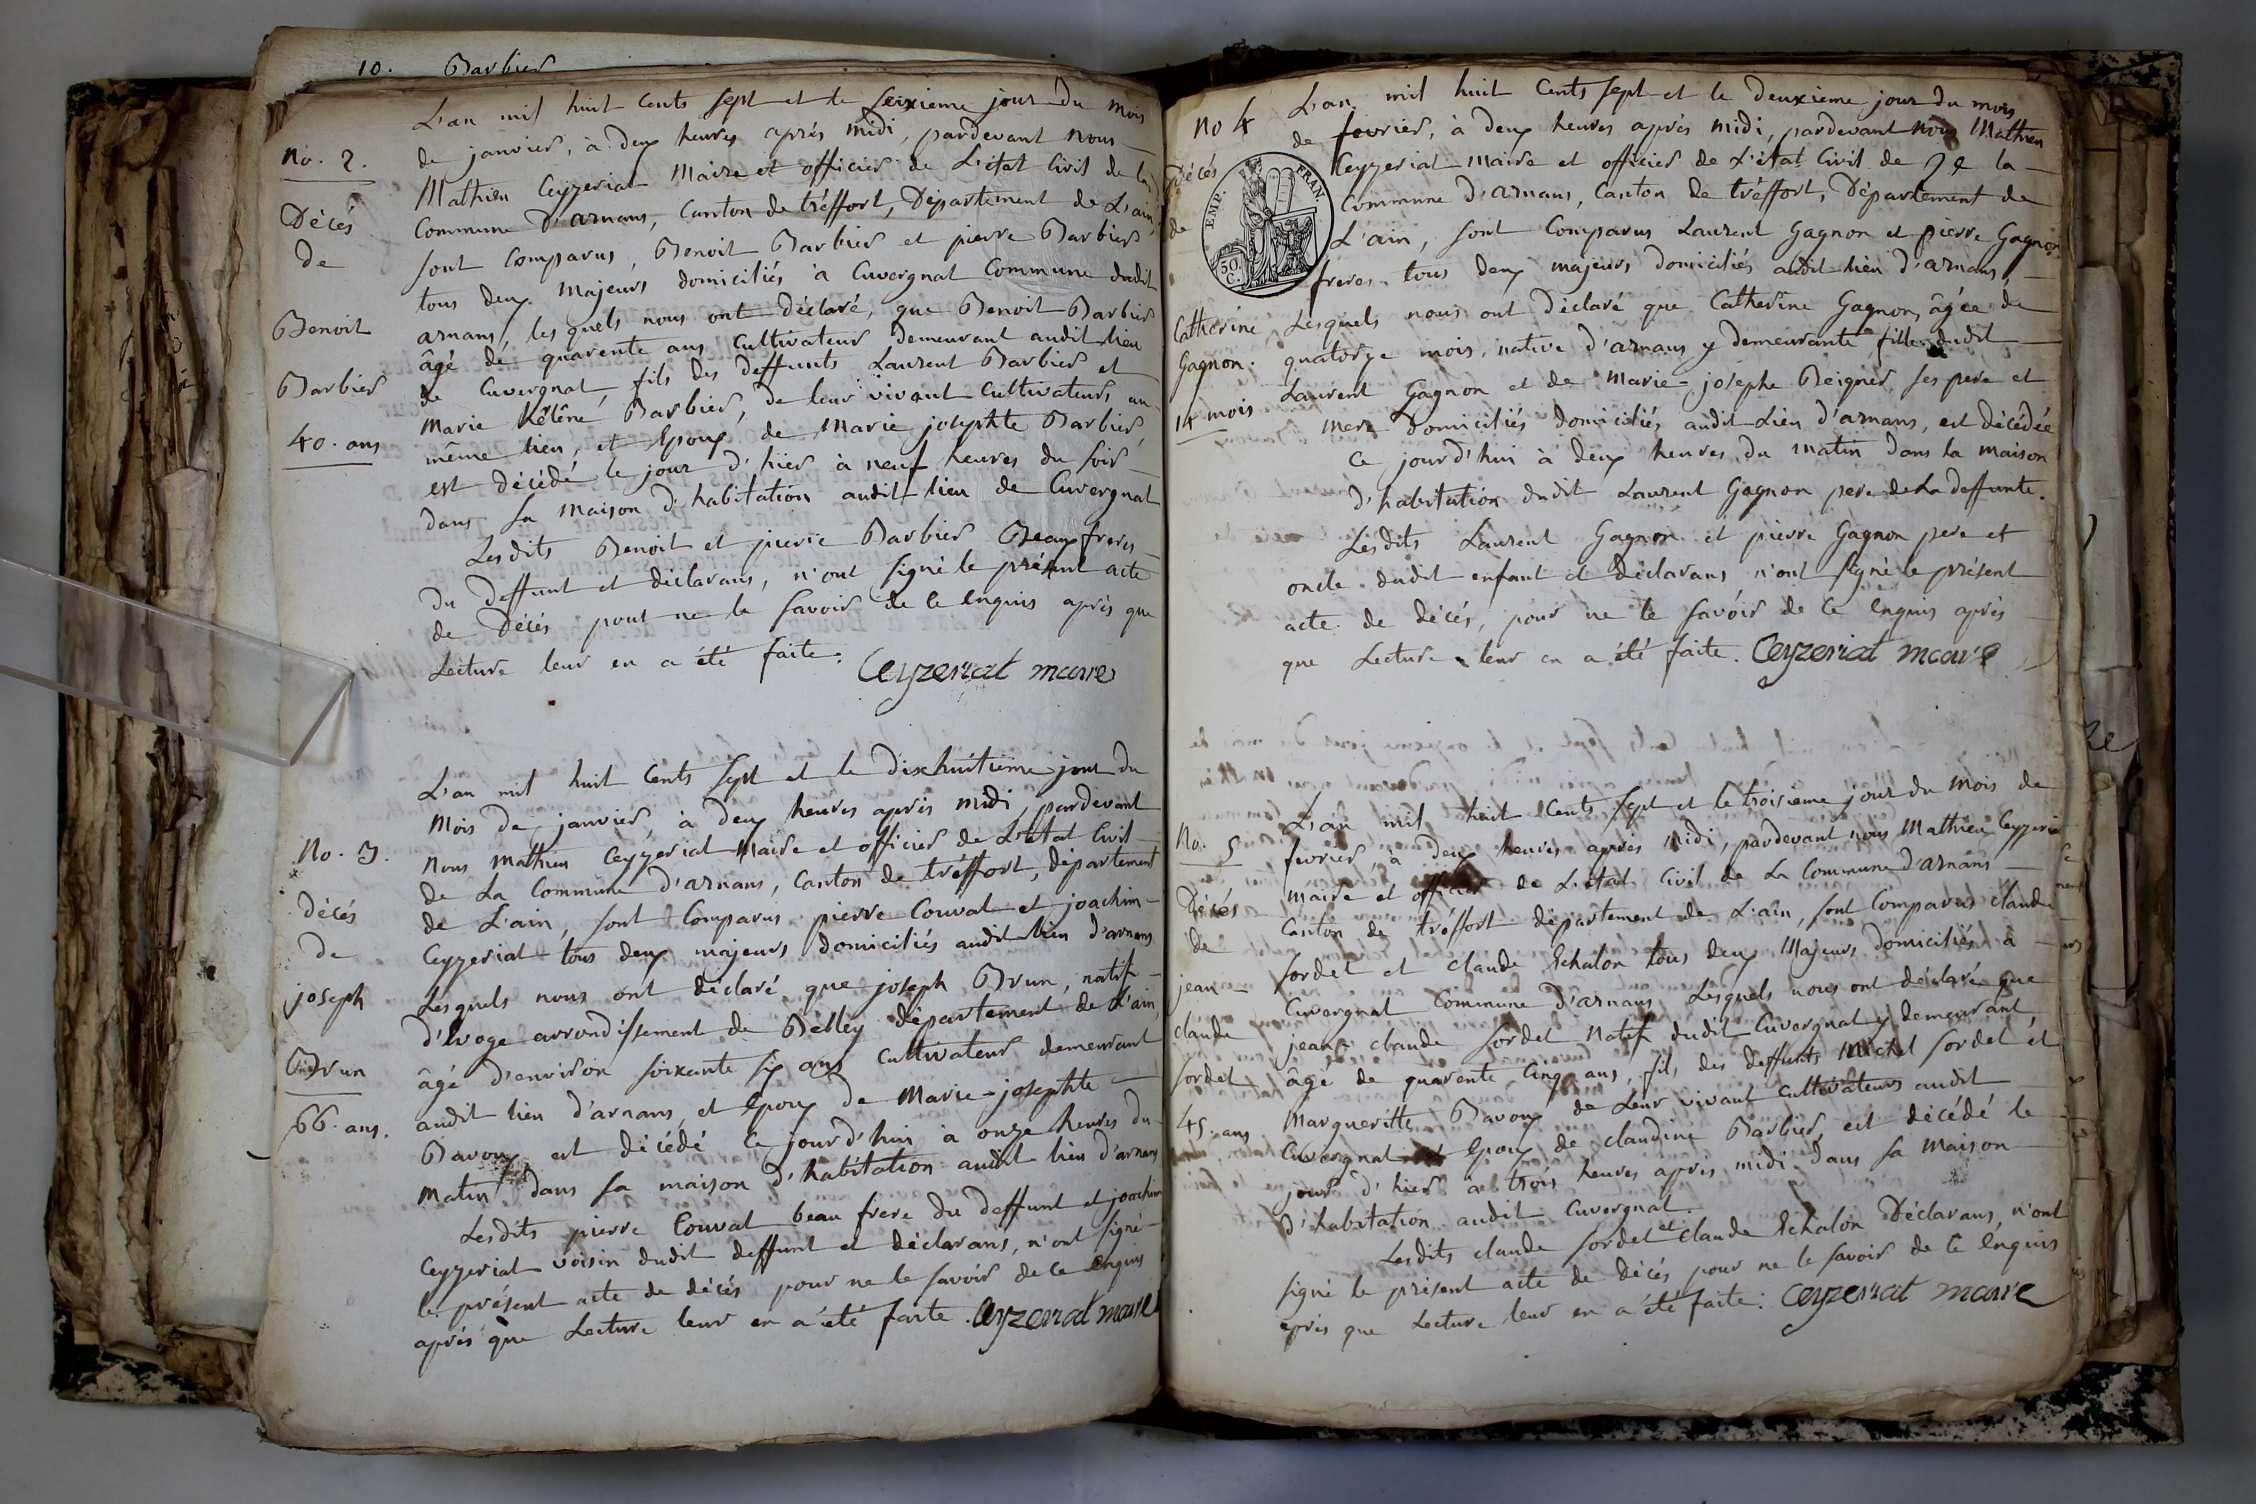 10. Barbier
L'an mil huit Cents sept et le Seixieme jour du mois
No. 2.
de janvier, à deux heures après midi, pardevant nous
Mathieu Ceyzeriat Maire et officier de L'état Civil de la
Décés
Commune D'arnans, Canton de tréffort, Département de L'ain,
de
sont Comparus, Benoit Barbier et pierre Barbier
tous deux majeurs domiciliés à Cuvergnat Commune dudit
Benoit
arnans, lesquels nous ont Déclaré, que Benoit Barbier
âgé de quarente ans Cultivateur demeurant audit lieu
Barbier
de Cuvergnat, fils des deffunts Laurent Barbier et
Marie héléne Barbier, de leur vivant Cultivateurs au
40. ans
même lieu, et Epoux de Marie josephte Barbier,
est décédé le jour d'hier à neuf heures du soir
dans sa maison d'habitation audit lieu de Cuvergnat
Lesdits Benoit et pierre Barbier Beaux freres
du deffunt et déclarans, n'ont signé le présent acte
de Décés pour ne le savoir de ce Enquis après que
Lecture leur en a été faite. Ceyzeriat maire
L'an mil huit Cents sept et le dixhuitieme jour du
Mois de janvier, à deux heures après midi, pardevant
No. 3.
nous Mathieu Ceyzeriat Maire et officier de L'état Civil
de La Commune d'arnans, Canton de tréffort, département
décés
de L'ain, sont Comparus pierre Couvat et joachim
de
Ceyzeriat tous deux majeurs domiciliés audit lieu d'arnans
joseph
Lesquels nous ont déclaré que joseph Brun, natif
d'Evoge arrondissement de Bélley département de L'ain,
Brun
âgé d'environ soixante six ans Cultivateur demeurant
66. ans.
audit lieu d'arnans, et Epoux de Marie-josephte
Bavoux est décédé Ce jourd'hui à onze heures du
Matin dans sa maison d'habitation audit lieu d'arnans
Lesdits pierre Couvat beau frere du deffunt et joachim
Ceyzeriat voisin dudit deffunt et déclarans, n'ont signé
le présent acte de décés pour ne le savoir de ce enquis
après que Lecture leur en a été faite. Ceyzeriat maire
No 4
L'an mil huit Cents sept et le deuxieme jour du mois
de fevrier, à deux heures après midi, pardevant nous Mathieu
Décés
Ceyzeriat Maire et officier de L'état Civil de la
EMP. FRAN.
50. C.
Commune d'arnans, Canton de tréffort, Département de
de
L'ain, sont Comparus Laurent Gagnon et pierre Gagnon
freres tous deux majeurs domiciliés audit lieu d'arnans,
Catherine
Lesquels nous ont Déclaré que Catherine Gagnon, âgée de
Gagnon.
quatorze mois, native d'arnans y demeurante, fille dudit
Laurent Gagnon et de Marie-josephe Beignier ses pere et
14 mois
mere domiciliés domiciliés audit Lieu d'arnans, est décédée
Ce jourd'hui à deux heures du matin dans la maison
d'habitation dudit Laurent Gagnon pere de La deffunte.
Lesdits Laurent Gagnon et pierre Gagnon pere et
oncle dudit enfant et Déclarans n'ont signé le présent
acte de décés, pour ne le savoir de Ce enquis après
que Lecture leur en a été faite. Ceyzeriat maire
L'an mil huit Cents sept et le troisieme jour du Mois de
No. 5
fevrier, à deux heures après midi, pardevant nous Mathieu Ceyzeriat
maire et officier de L'état Civil de La Commune d'arnans
Décés
Canton de tréffort département de L'ain, sont Comparus claude
de
Sordet et claude Echalon tous deux Majeurs domiciliés à
jean
Cuvergnat Commune d'arnans, Lesquels nous ont déclaré que
claude
jean-claude Sordet natif dudit Cuvergnat y demeurant,
Sordet
âgé de quarente Cinq ans, fils des deffunts Michel Sordet et
45. ans
Margueritte Bavoux de Leur vivant Cultivateurs audit
Cuvergnat Epoux de claudine Barbier, est décédé le
jour d'hier à trois heures après midi dans sa Maison
d'habitation audit Cuvergnat.
Lesdits claude Sordet et claude Echalon Déclarans, n'ont
signé le présent acte de décés pour ne le savoir de Ce Enquis
après que Lecture leur en a été faite. Ceyzeriat maire